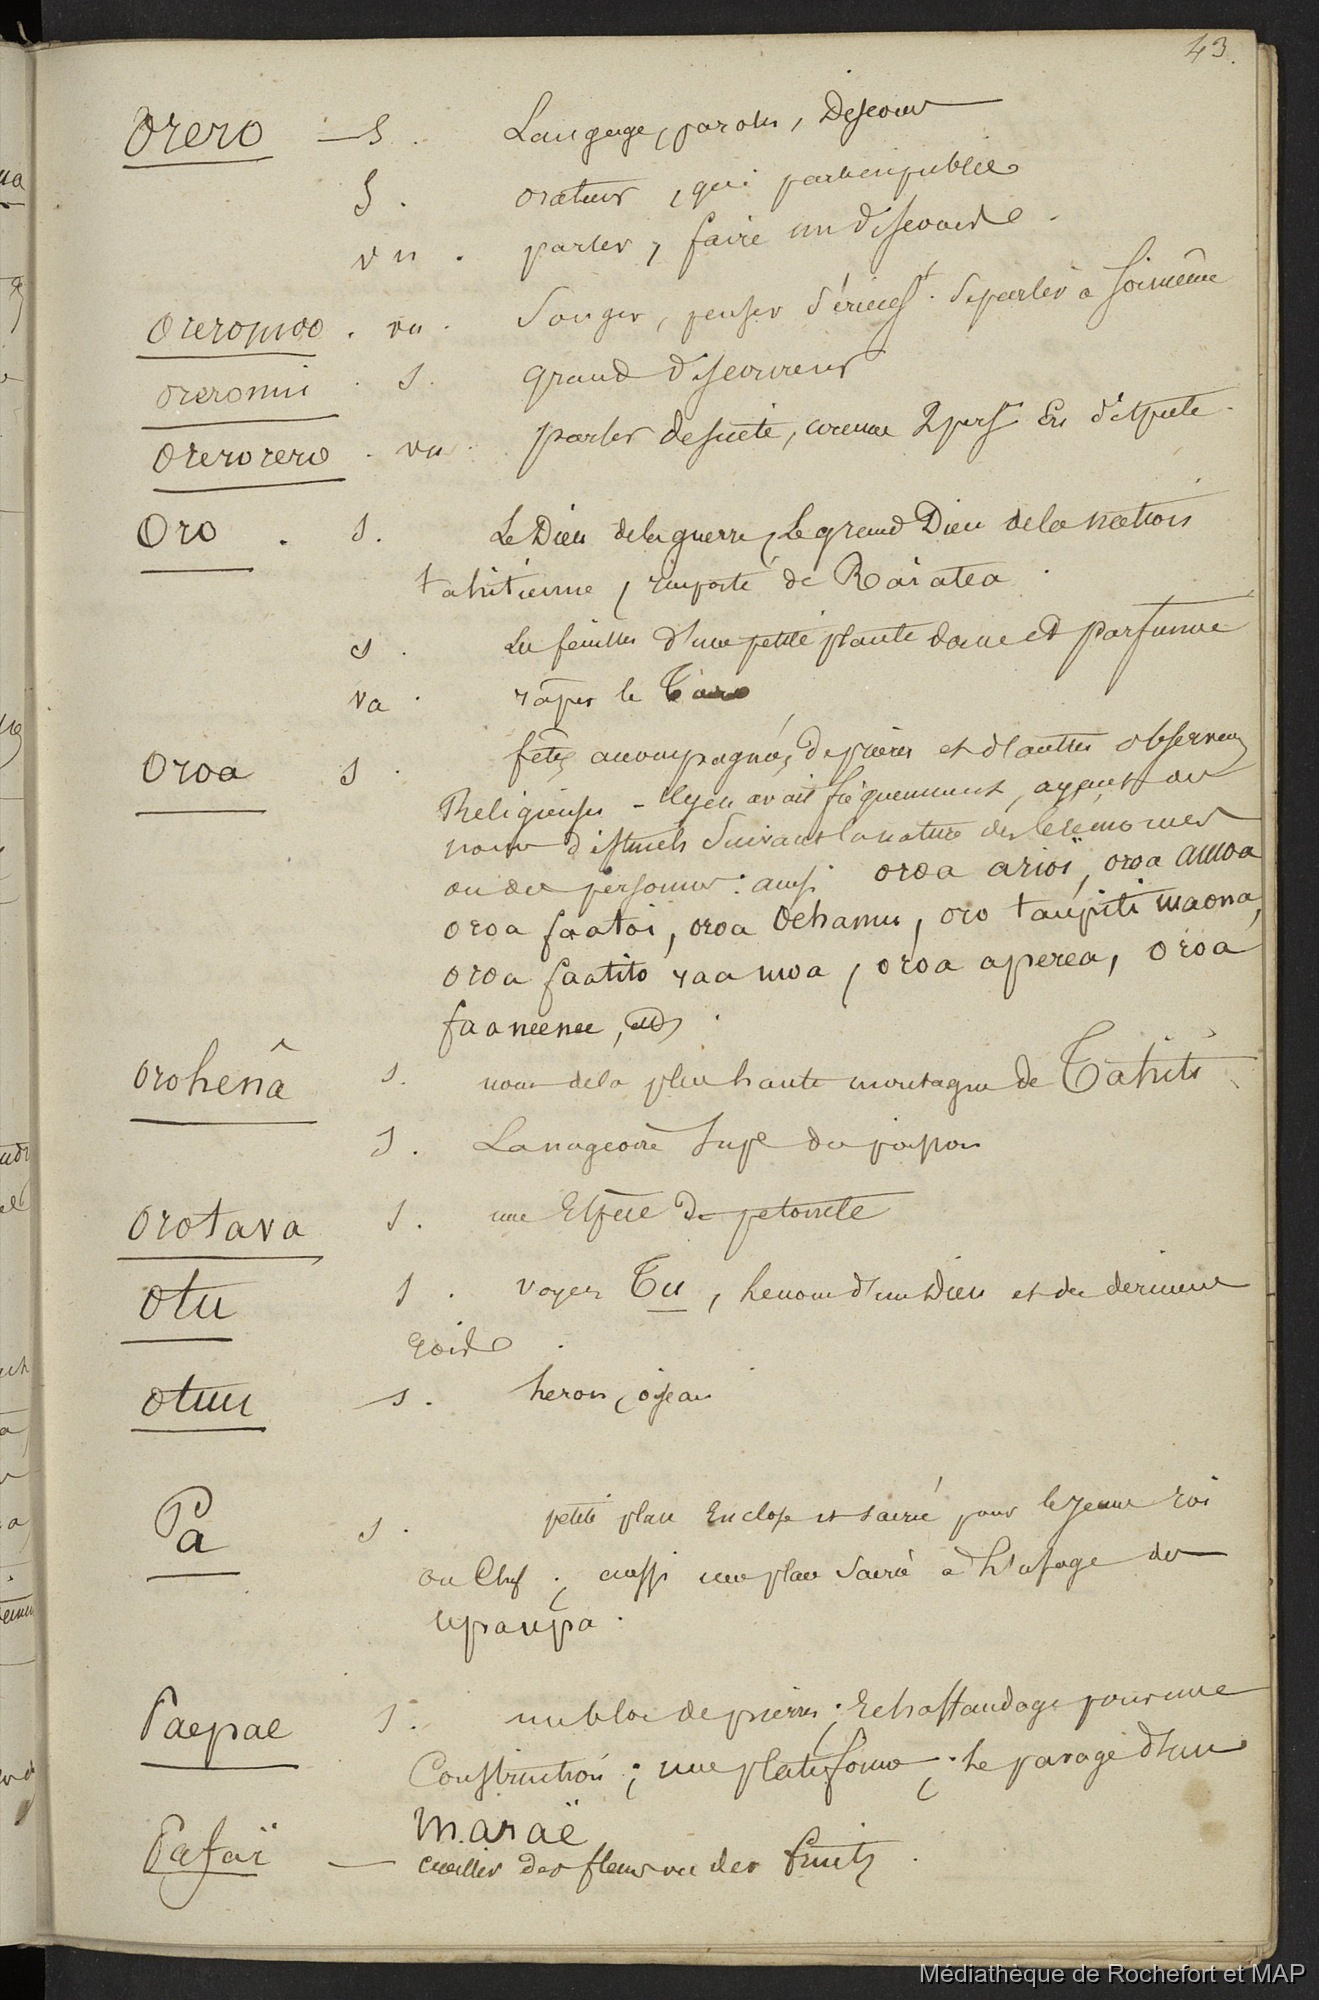 43.
Orero — S. Langage, paroles, Discours
S. orateur, qui parle en public
vn. parler, faire un discours.
Oreromoo. vn. Songer, penser série.st. se parler à soi même
oreromui. S. grand discoureur
Orerorero. vn. parler de suite, comme 2 pers. en dispute.
Oro. S. Le Dieu de la guerre, Le grand Dieu de la nation
tahitienne, importé de Raiatea.
S. Les feuilles d'une petite plante et parfumée
va. râper le Taro
Oroa S. fêtes accompagnées de prières et d'autres observces
Religieuses - Il y en avait fréquemment, ayant des
noms distincts suivant la nature des cérémonies
ou des personnes: ainsi oroa arioï, oroa amoa
oroa faatoi, oroa Oehamu, oro taupiti maona,
oroa faatito raa moa, oroa aperea, oroa
faaneenee, etc.
Orohenâ S. nom de la plus haute montagne de Tahiti
S. La nageoire supe du poisson
Orotava S. une Espèce de
Otu S. voyez Tu, le nom d'un Dieu et du dernier
roi
Otuu S. heron, oiseau
Pa S. petite place Enclose et sacrée pour le jeune roi
ou Chef; aussi une place sacrée à l'usage des
upaupa.
Paepae S. un bloc de pierres; Echaffaudage pour une
Construction; une plateforme; le pavage d'un
maraë
Pafaï — cueillir des fleurs ou des fruits.
Médiathèque de Rochefort et MAP